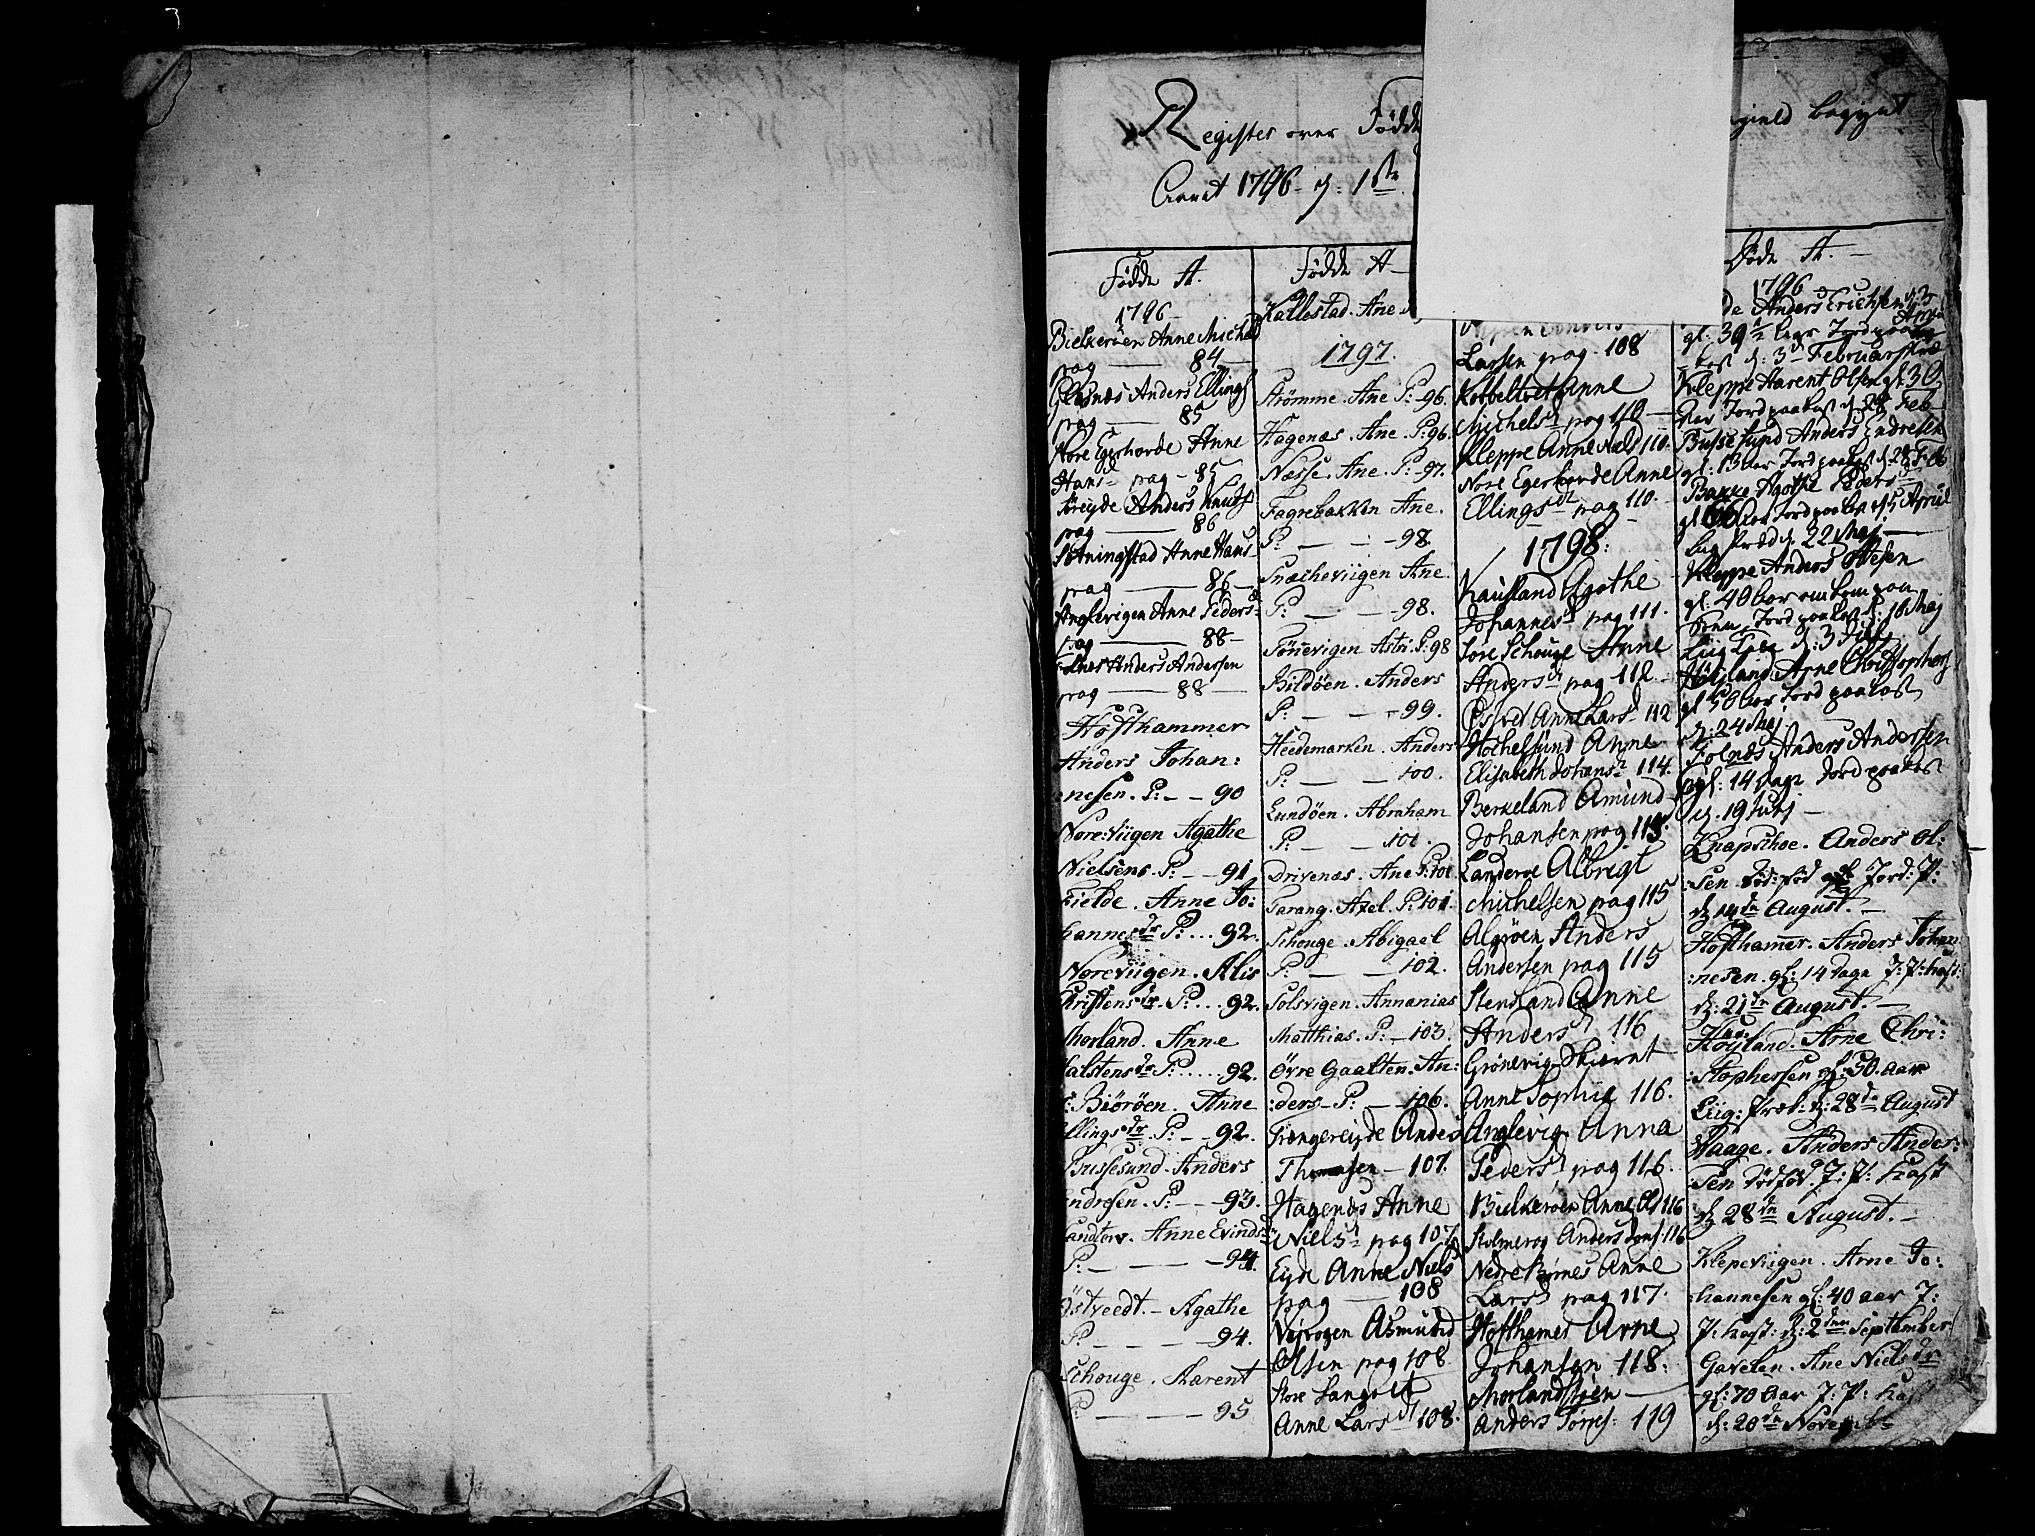 Register over Fødde
gield begynt
Aaret 1796 d: 1ste
Fødde A.
1796
Bielkerøen Anne Michels
pag 84
Glesnæs Anders Ellings
pag 85
Nore Egerhovde Anne
Hansd pag - 85
Anders Knuts
pag 86
Anne Hans
pag 86
Anglevigen Anne Peders
pag 88
Anders Andersen
pag 88
Hofthammer
Anders Johan:
nesen. P: - - 90
Nore: Viigen Agathe
Nielsens. P: - - 91
Fielde. Anne Jo:
hannesdr P: ... 92.
Noreviigen. Alis
Christensdr. P: ... 92.
Morland. Anne
Halstensdr P: ..... 92.
Biørøen. Anne
Ellingsdr. P: - - 92.
Bussesund. Anders
Endresen. P: - - 93.
Anne Evinds
P: - - - 94.
Østveedt. - Agathe
P: - - - 94.
Schouge. Aarent
P: - - - 95
Fødde A -
Kallestad. Ane
1797.
Strømme. Ane P: 96.
Hagenæs. Ane. P: 96.
Næsse. Ane. P: - 97.
Fagrebakken Ane.
P: - - - 98.
Snecheviigen Ane.
P: - - - 98.
Tørrevigen Astri. P: 98
Bildøen. Anders
P: - - - 99.
Heedemarken. Anders
P: - - - 100.
Lundøen. Abraham
P: - - - 101.
Drivenæs. Ane P: 101
Tarang. Axel. P: 101.
Schouge. Abigael
P: - - - 102.
Solsvigen. Annanias
Matthias. P: - 103.
Øvre Gaalten. An:
:ders - P: - - 106.
Anders
- 107.
Hagenæs Anne
Niels pag 107
Eyde Anne Niels
pag 108
Asmund
Olsen pag 108
Store Sangolt
Anne Larsd 108.
Larsen pag - 108
Kobbeltvet Anne
Michelsd pag 110
Kleppe Anne Niels 110.
Nore Egerhovde Anne
Ellingsd pag 110.
1798:
Kausland Agathe
Johannesd pag 111.
Tore Schouge Anne
Andersd pag 112.
Østvet Anne Lars 112
Anne
Elisabeth Johansd 114.
Berkeland Amund
Johansen pag 115.
Landeroe Albregt
Michelsen pag 115
Algrøen Anders
Andersen pag 115
Stensland Anne
Andersd 116
Grønevig Skiernt
Anne Sophie 116.
Anglevig Anna
Pedersd pag 116.
Bielkerøen Anne Ols 116
Anders 116
Nedre Anne
Larsd pag 117.
Hofthamer Arne
Johansen 118:
Morland
Anders 119
Døde A. -
1796
Anders Erichsen
gl: 39 Aar Jordpaakast
d: 3d Februar
Kleppe Harent Olsen gl: 30
Aar Jordpaakast d: 28 Feb
Bussesund Anders Endresen
gl: 13 Aar Jordpaakast d: 28 Feb
Bakke Agothe Peders
gl 66 Aar Jordpaakast d: 5 April
d 22 Maj
Kleppe Anders Olesen
gl. 40 Aar omkom paa
Søen, Jordpaakast d: 16 Maj
d: 3 Jul
Høyland Arne Christophers
gl 50 Aar Jordpaakast
d: 24 Maj
Anders Andersen
gl: 14 Dage Jordpaakast
d. 19 Juli
Knapschoe. Anders Ol:
:sen død:fød Jord: P:
d: 14de August. -
Hofthamer. Anders Johan
:nesen. gl: 14 Dage J: P: kast:
d: 21de August. -
Høyland. Arne Chri:
:stophersen gl: 50. aar
Liig: Præd: d: 28de August
Vaage. Anders Ander:
Sen dødfød J: P: kast
d: 28de August. -
Klepeviigen. Arne Jo:
:hannesen gl: 40 aar J:
P: kast: d: 2den September
Gavelen. Ane Nielsdr
gl: 70 Aar J: P: kast
d: 20de Novemb